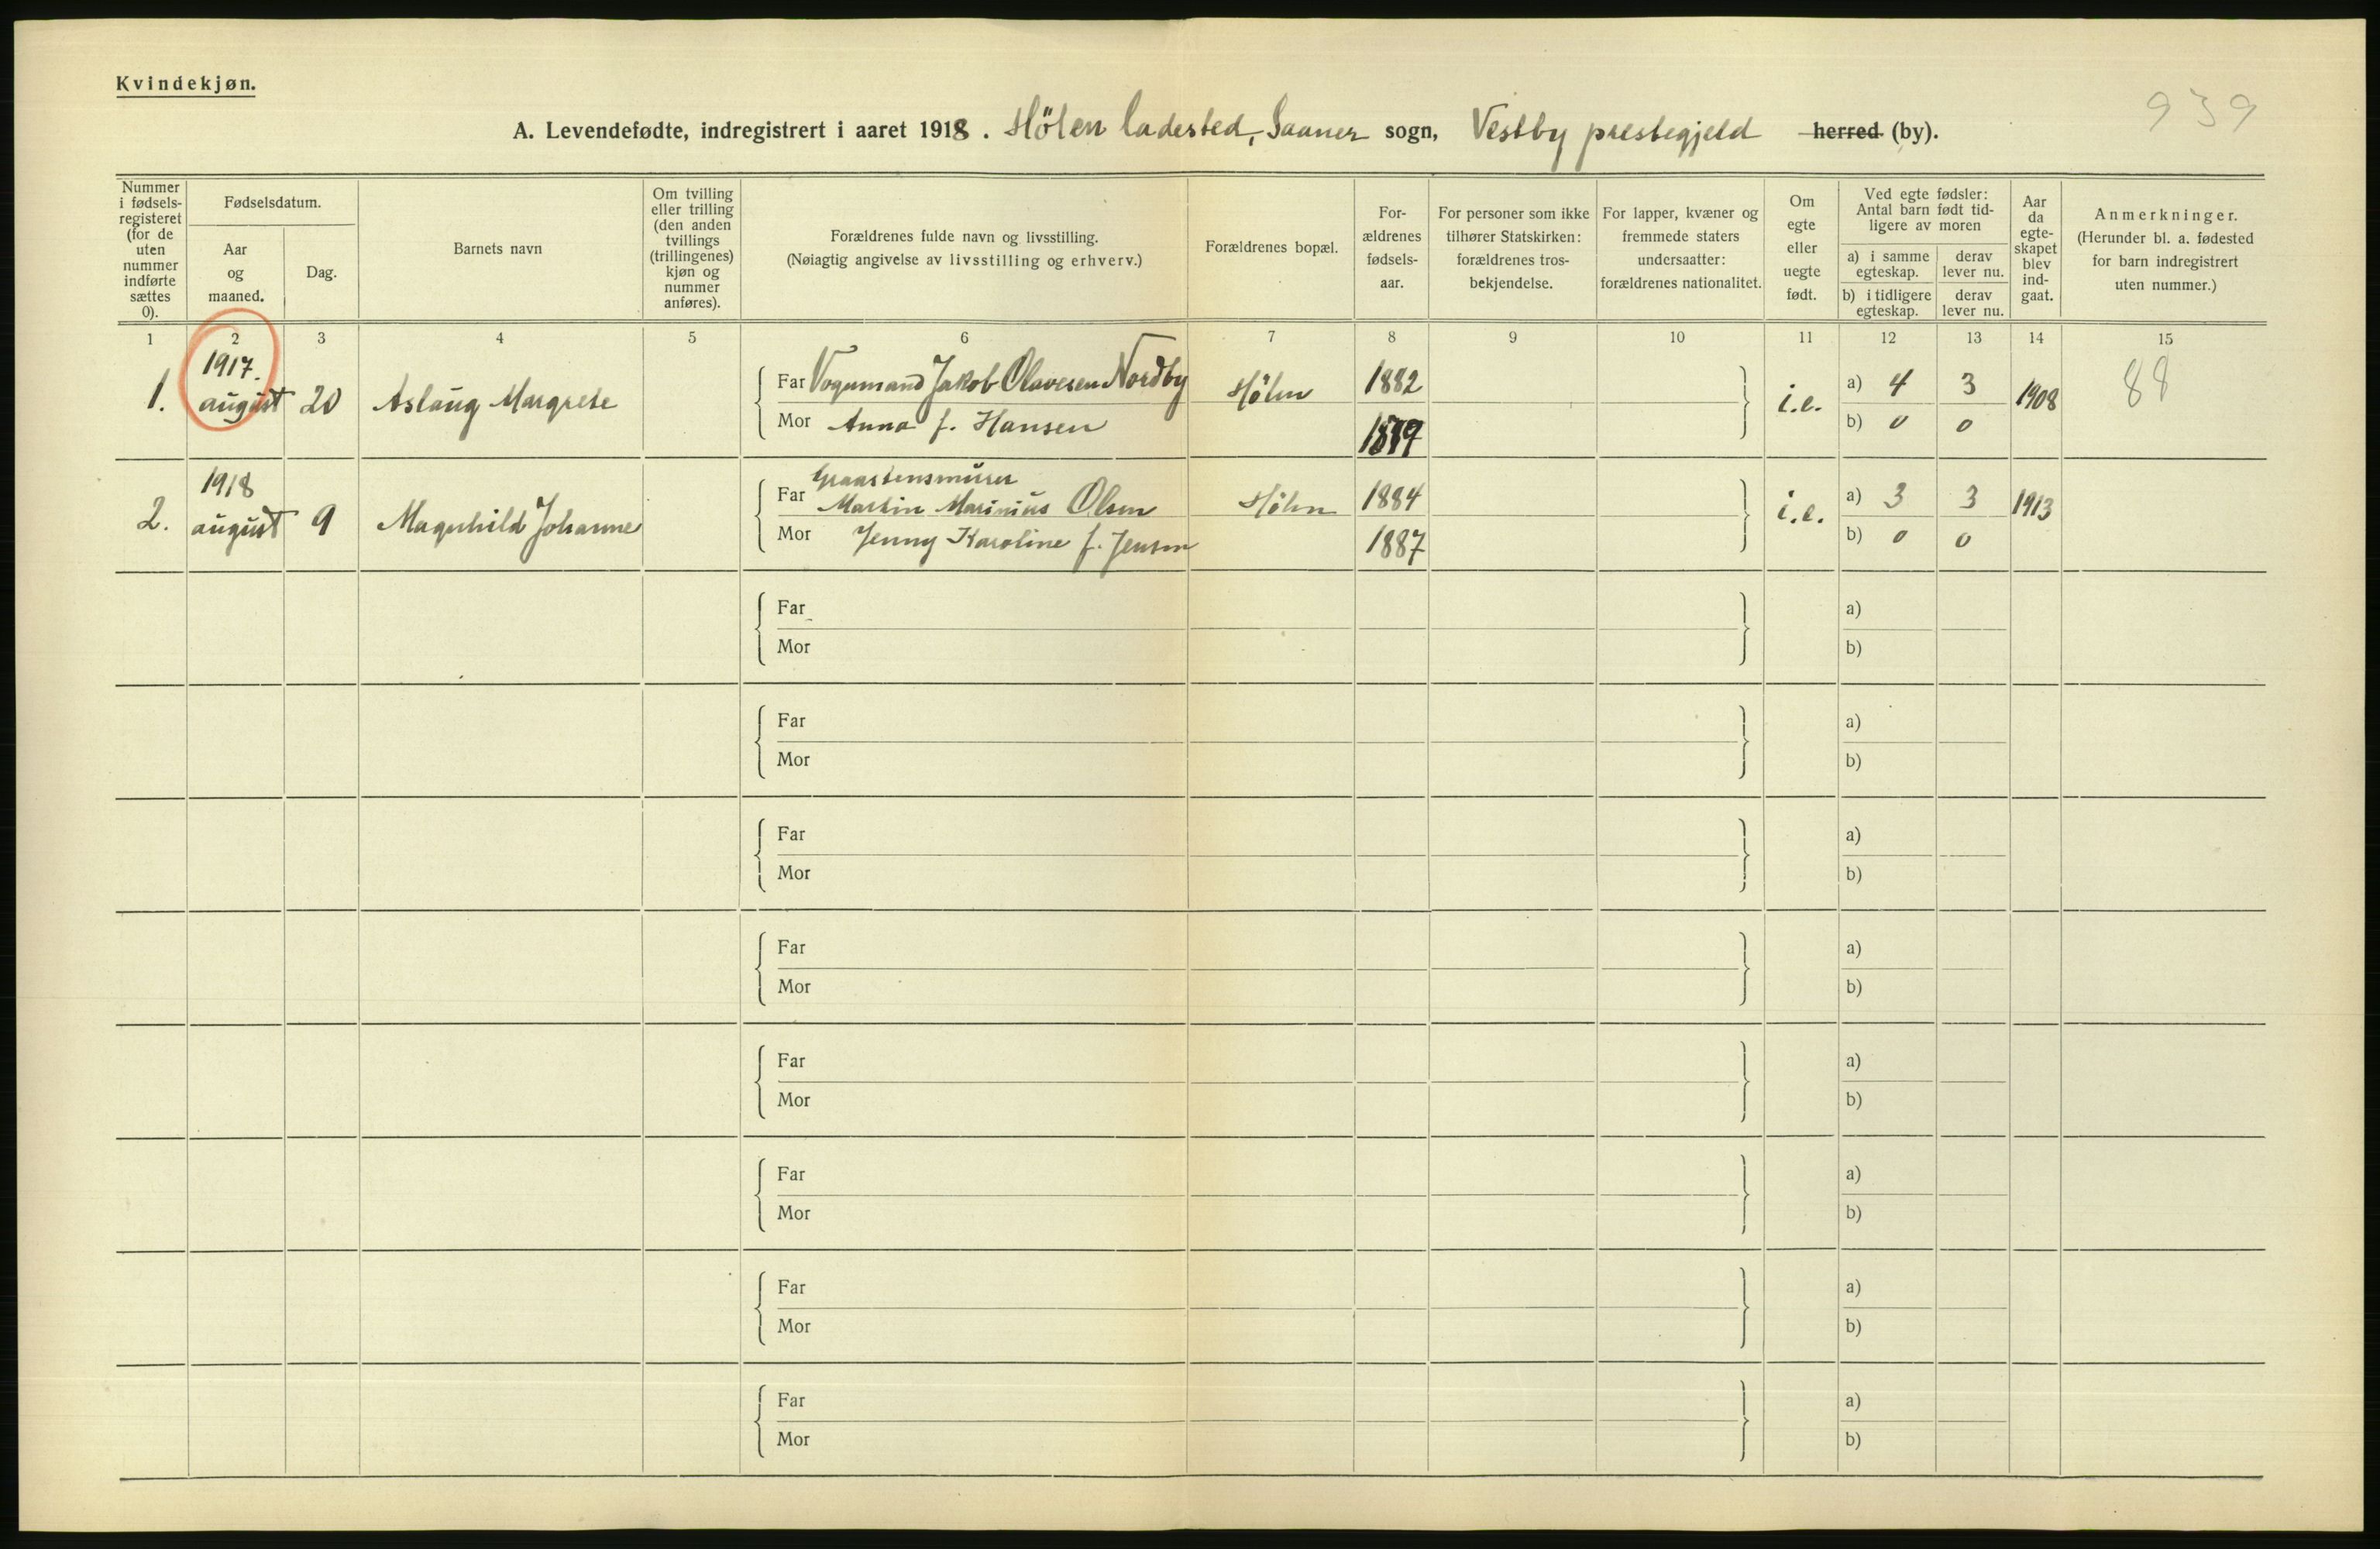 Kvindekjøn.
939
A. Levendefødte, indregistrert i aaret 1918. Hölen ladested, Saaner sogn, Vestby prestegjeld herred (by).
Nummer i fødselsregisteret (for de uten nummer indførte sættes 0).
Fødselsdatum.
Aar og maaned.
Dag.
Barnets navn
Om tvilling eller trilling (den anden tvillings (trillingenes) kjøn og nummer anføres).
Forældrenes fulde navn og livsstilling.
(Nøiagtig angivelse av livsstilling og erhverv.)
Forældrenes bopæl.
Forældrenes fødselsaar.
For personer som ikke tilhører Statskirken: forældrenes trosbekjendelse.
For lapper, kvæner og fremmede staters undersaatter: forældrenes nationalitet.
Om egte eller uegte født.
Ved egte fødsler: Antal barn født tidligere av moren
a) i samme egteskap.
derav lever nu.
b) i tidligere egteskap.
derav lever nu.
Aar da egteskapet blev indgaat.
Anmerkninger.
(Herunder bl. a. fødested for barn indregistrert uten nummer.)
1 2 3 4 5 6 7 8 9 10 11 12 13 14 15
1. 1917. august 20 Aslaug Margrete
Far Vognmand Jakob Olavesen Nordby Hölen 1882 i.e. a) 4 3 1908 88
Mor Anna f. Hansen b) 0 0
2. 1918 august 9 Magnhild Johanne
Graastensmurer
Far Martin Marinius Olsen Hölen 1884 i.e. a) 3 3 1913
Mor Jenny Karoline f. Jensen 1887 b) 0 0
Far a)
Mor b)
Far a)
Mor b)
Far a)
Mor b)
Far a)
Mor b)
Far a)
Mor b)
Far a)
Mor b)
Far a)
Mor b)
Far a)
Mor b)